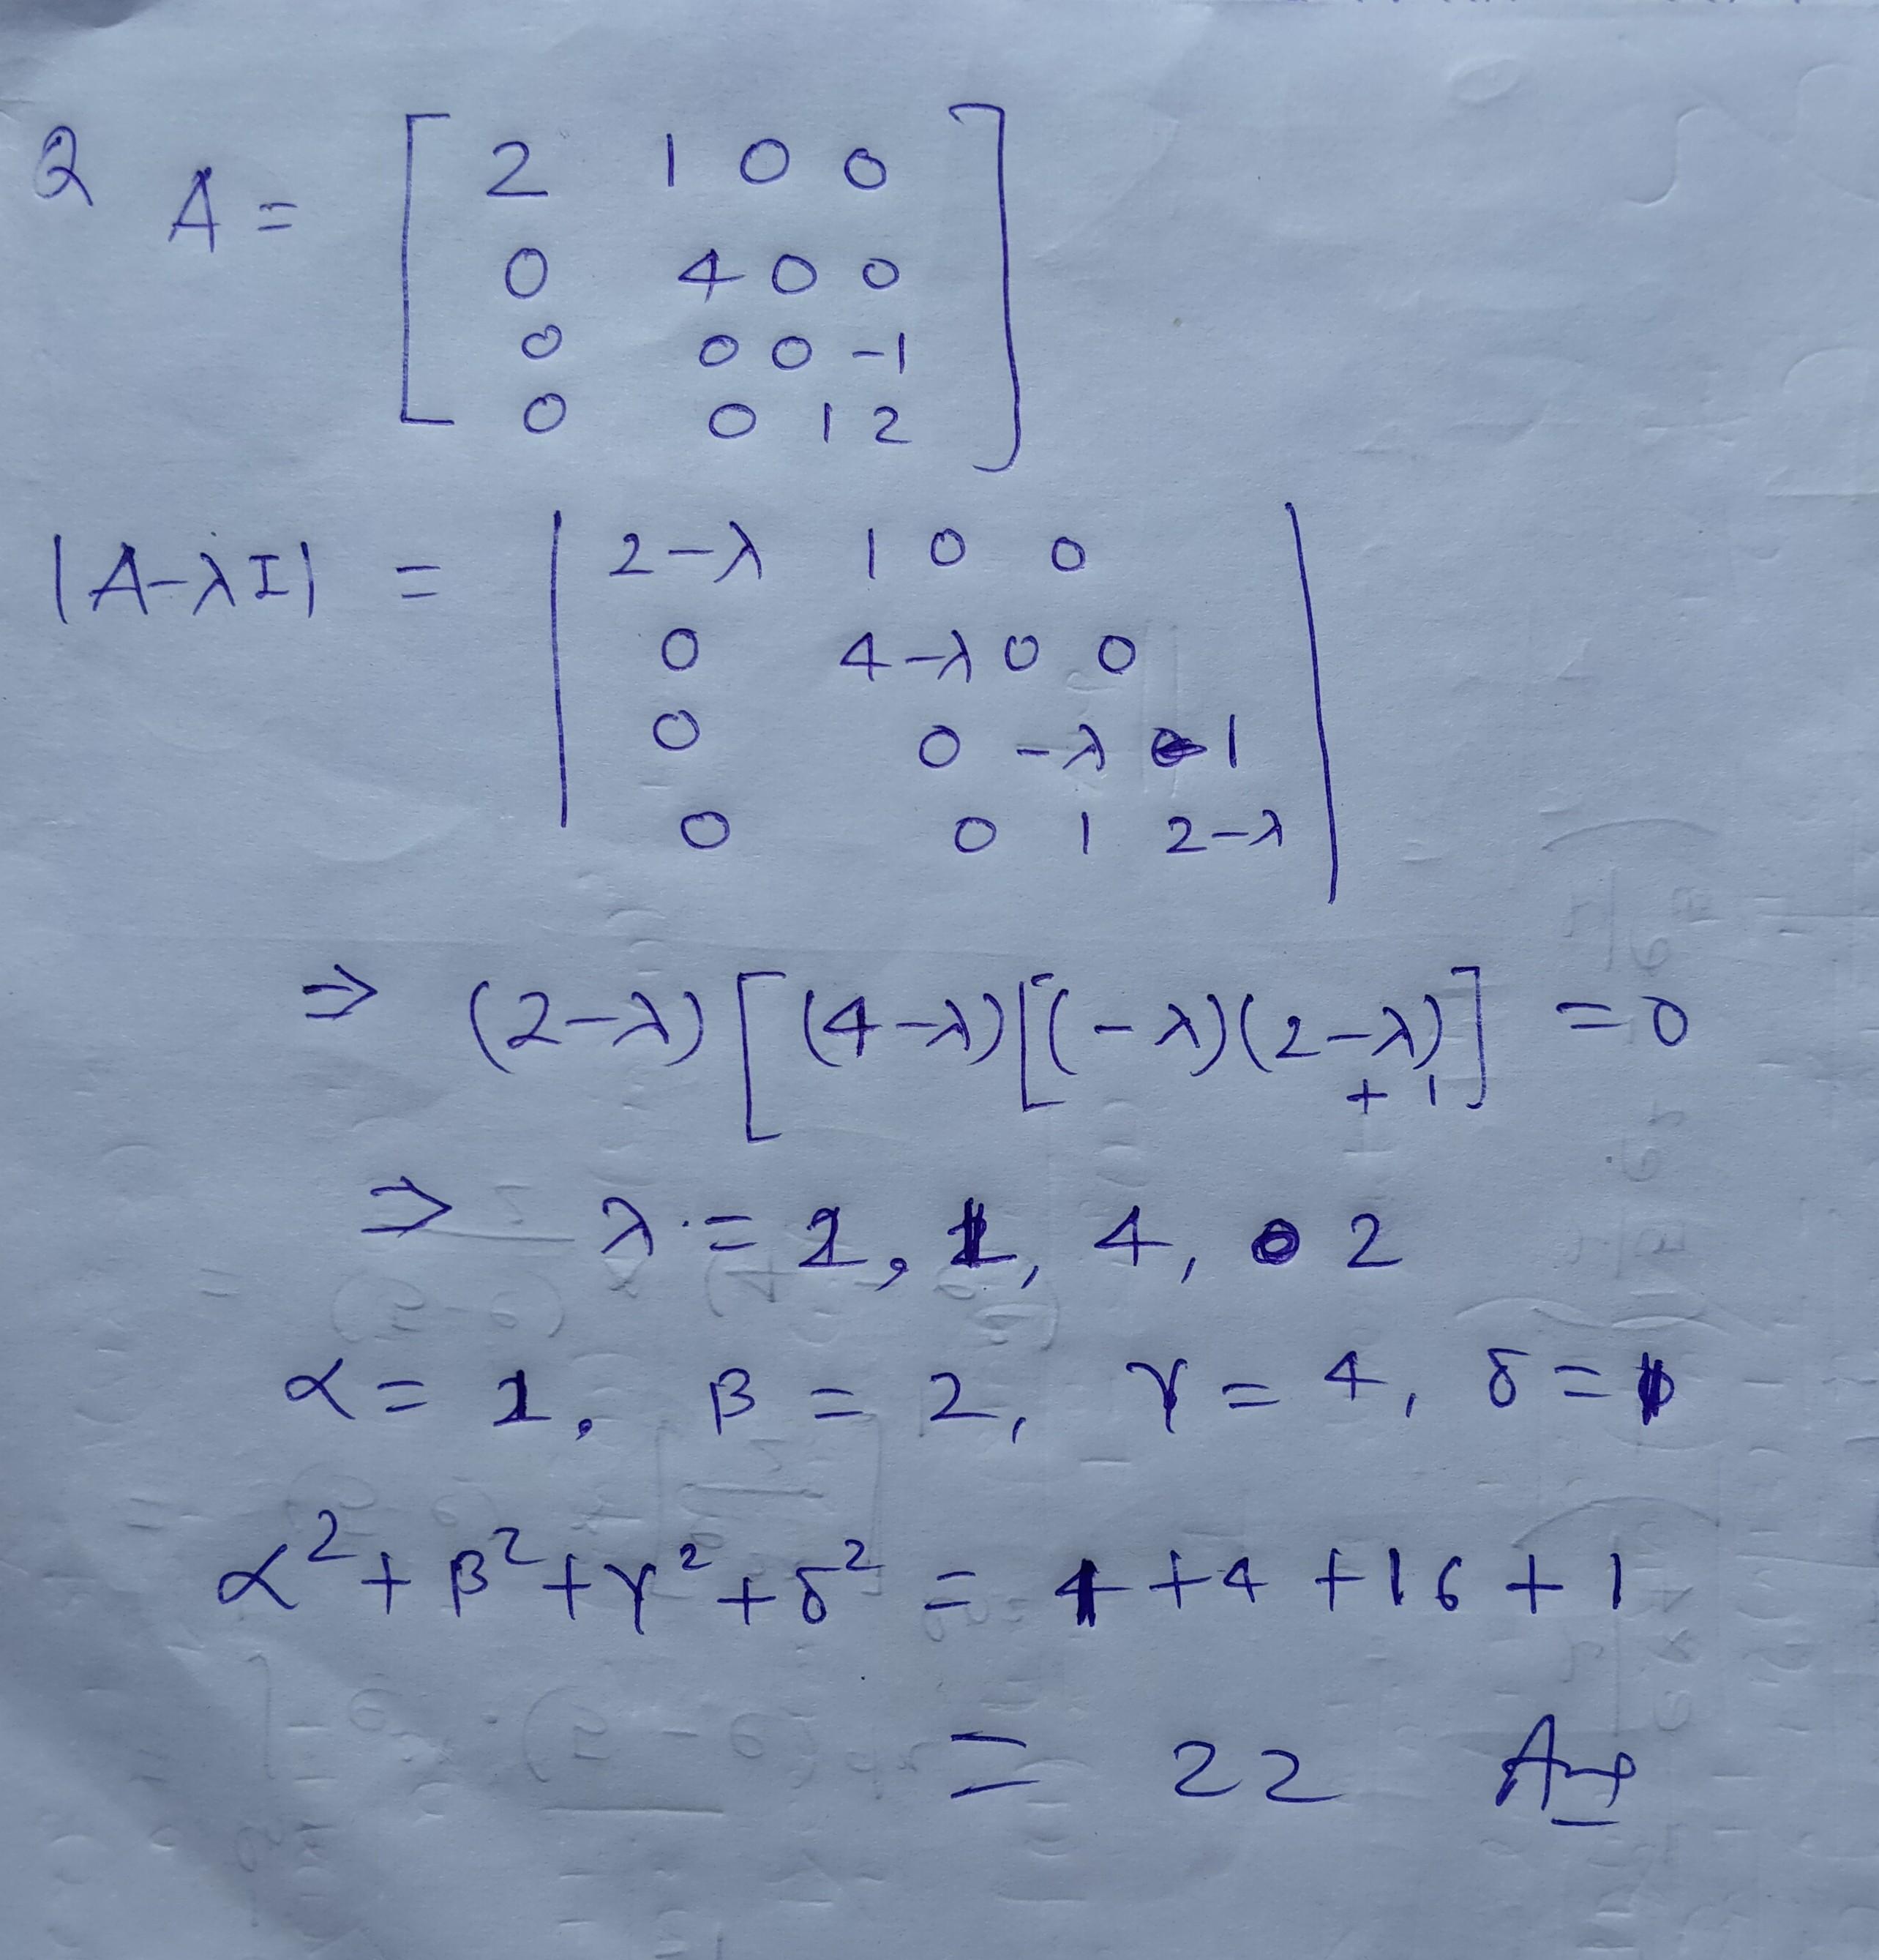 Q A = [ 2 1 0 0
0 4 0 0
0 0 0 -1
0 0 1 2 ]
|A-λI| = | 2-λ 1 0 0
0 4-λ 0 0
0 0 -λ -1
0 0 1 2-λ |
⇒ (2-λ)[(4-λ)[(-λ)(2-λ)+1] = 0
⇒ λ = 1, 1, 4, 2
α = 1, β = 2, γ = 4, δ = 1
α²+β²+γ²+δ² = 1+4+16+1
= 22 Ans